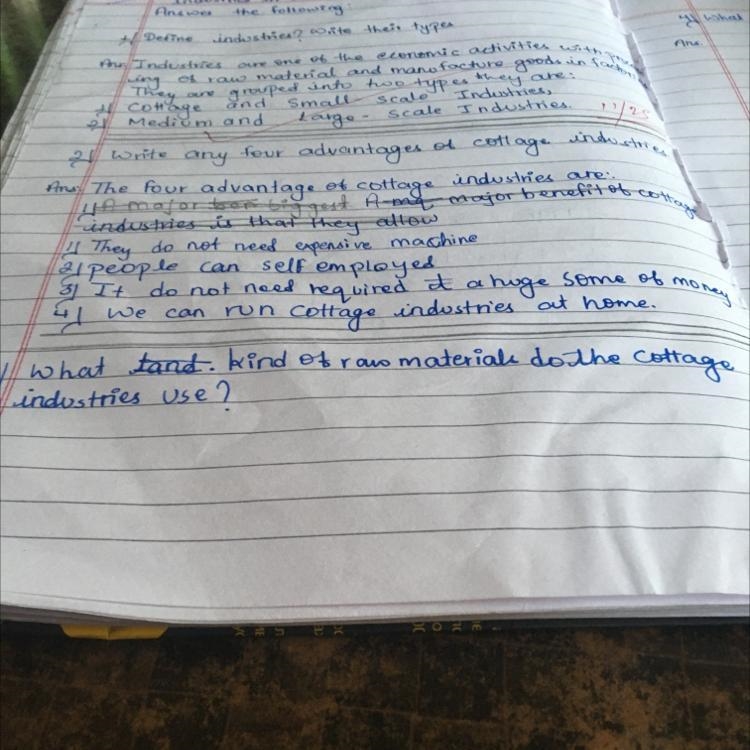 Answer the following:
Define industries? Write their types
Ans Industries are one of the economic activities with
ing of raw material and manofacture goods in factori
They are grouped into two types they are:
1) Cottage and Small Scale Industries,
2) Medium and Large-Scale Industries.
2) Write any four advantages of cottage industries
Ans: The four advantage of cottage industries are:
1) A major biggest A major benefit of cottage
industries is that they allow
1) They do not need expensive machine
2) people can self employed
3) It do not need required a huge some of money
4) We can run cottage industries at home.
What kind of raw materials do the cottage
industries use?
What
Ans.